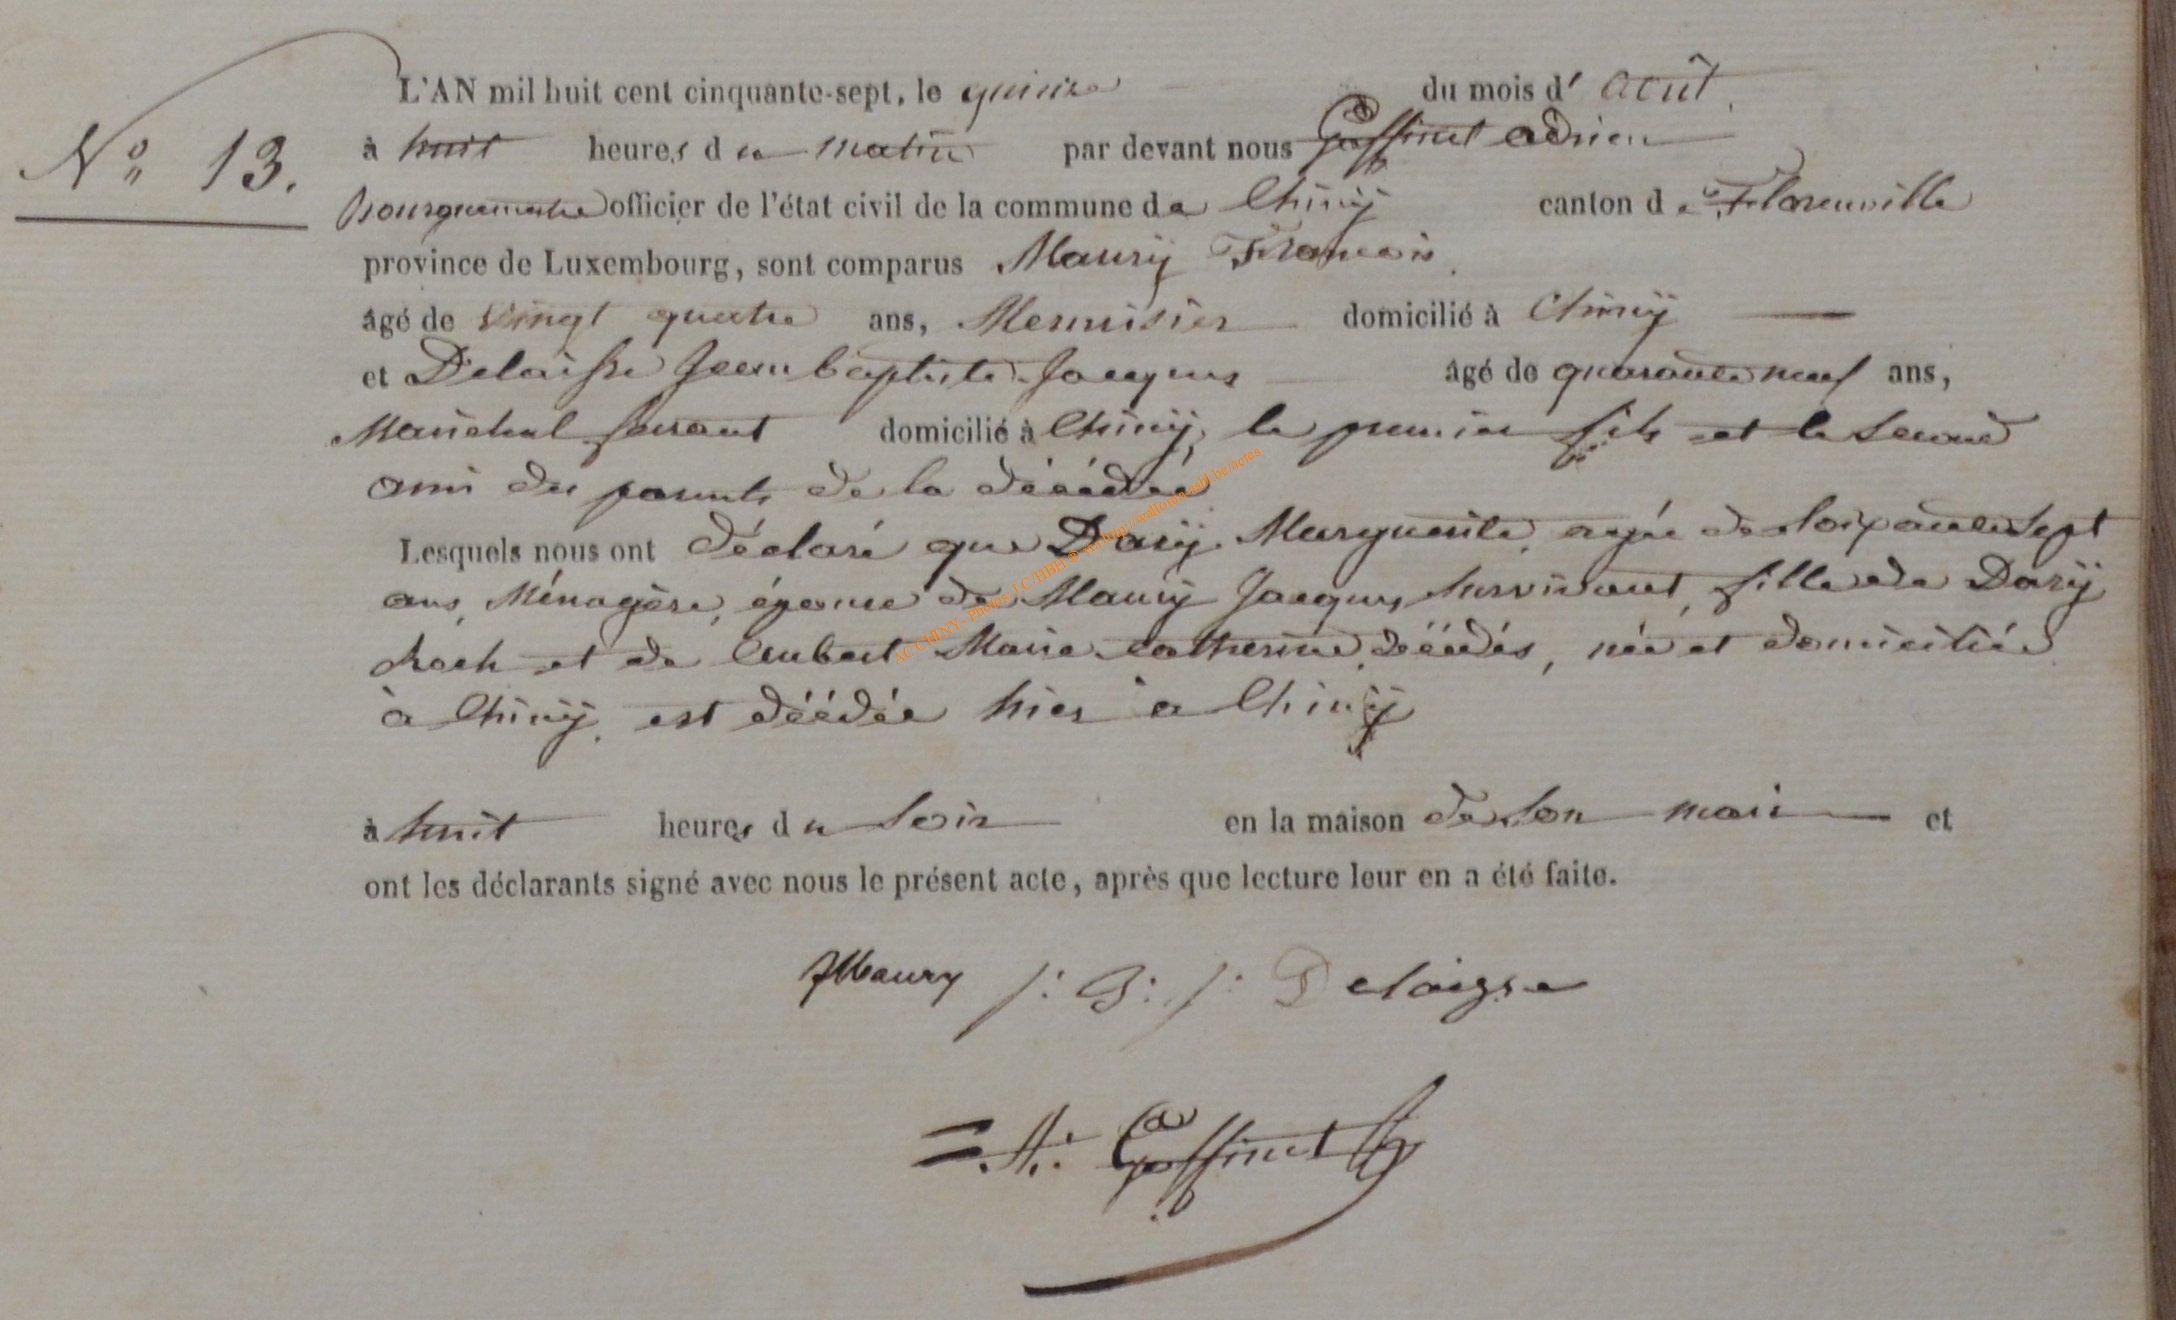 L'AN mil huit cent cinquante-sept, le quinze du mois d' août.
N° 13.
à huit heures du matin par devant nous Goffinet Adrien
Bourguemestre officier de l'état civil de la commune de Chinÿ canton de Florenville
province de Luxembourg, sont comparus Maurÿ François
âgé de vingt quatre ans, Menuisier domicilié à Chinÿ
et Delaisse Jean baptiste Jacques âgé de quarante neuf ans,
Maréchal ferrant domicilié à Chinÿ, le premier fils et le second
ami des parents de la décédée
Lesquels nous ont déclaré que Darÿ Marguerite, agée de soixante sept
ans, Ménagère, épouse de Maurÿ Jacques survivant, fille de Darÿ
Roch et de Aubert Marie catherine, décédés, née et domiciliée
à Chinÿ, est décédée hier à Chinÿ
à huit heures du soir en la maison de son mari et
ont les déclarants signé avec nous le présent acte, après que lecture leur en a été faite.
FMaury J: B: J: Delaisse
A. Goffinet
AC CHINY - Photos J.C/HBH © via http://wallonia-asbl.be/actes